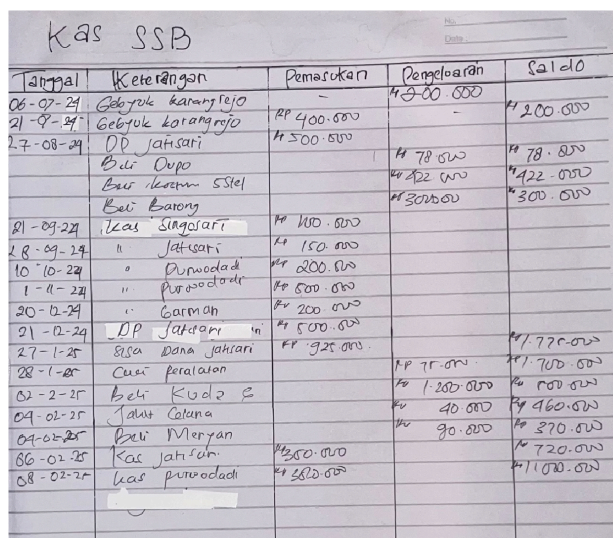 No.
Date
Kas SSB
Tanggal Keterangan Pemasukan Pengeluaran Saldo
06-07-24 Gebyuk karangrejo - Rp 200.000
21-9-24 Gebyuk karangrejo Rp 400.000 - Rp 200.000
27-08-24 DP Jatisari Rp 500.000
Beli Dupo Rp 78.000 Rp 78.000
Beli 5 Stel Rp 422.000 Rp 422.000
Beli Barong Rp 300.000 Rp 300.000
21-09-24 Kas Singosari Rp 100.000
28-09-24 " Jatisari Rp 150.000
10-10-24 " Purwodadi Rp 200.000
1-11-24 " Purwodadi Rp 500.000
20-12-24 " Garman Rp 200.000
21-12-24 DP Jatisari Rp 500.000
27-1-25 Sisa Dana Jatisari Rp 925.000 Rp 1.775.000
28-1-25 Cuci peralatan Rp 75.000 Rp 1.700.000
02-2-25 Beli Kuda 6 Rp 1.200.000 Rp 500.000
04-02-25 Jahit Celana Rp 40.000 Rp 460.000
04-02-25 Beli Meryan Rp 90.000 Rp 370.000
06-02-25 Kas Jatisari Rp 350.000 Rp 720.000
08-02-25 kas purwodadi Rp 380.000 Rp 1.100.000